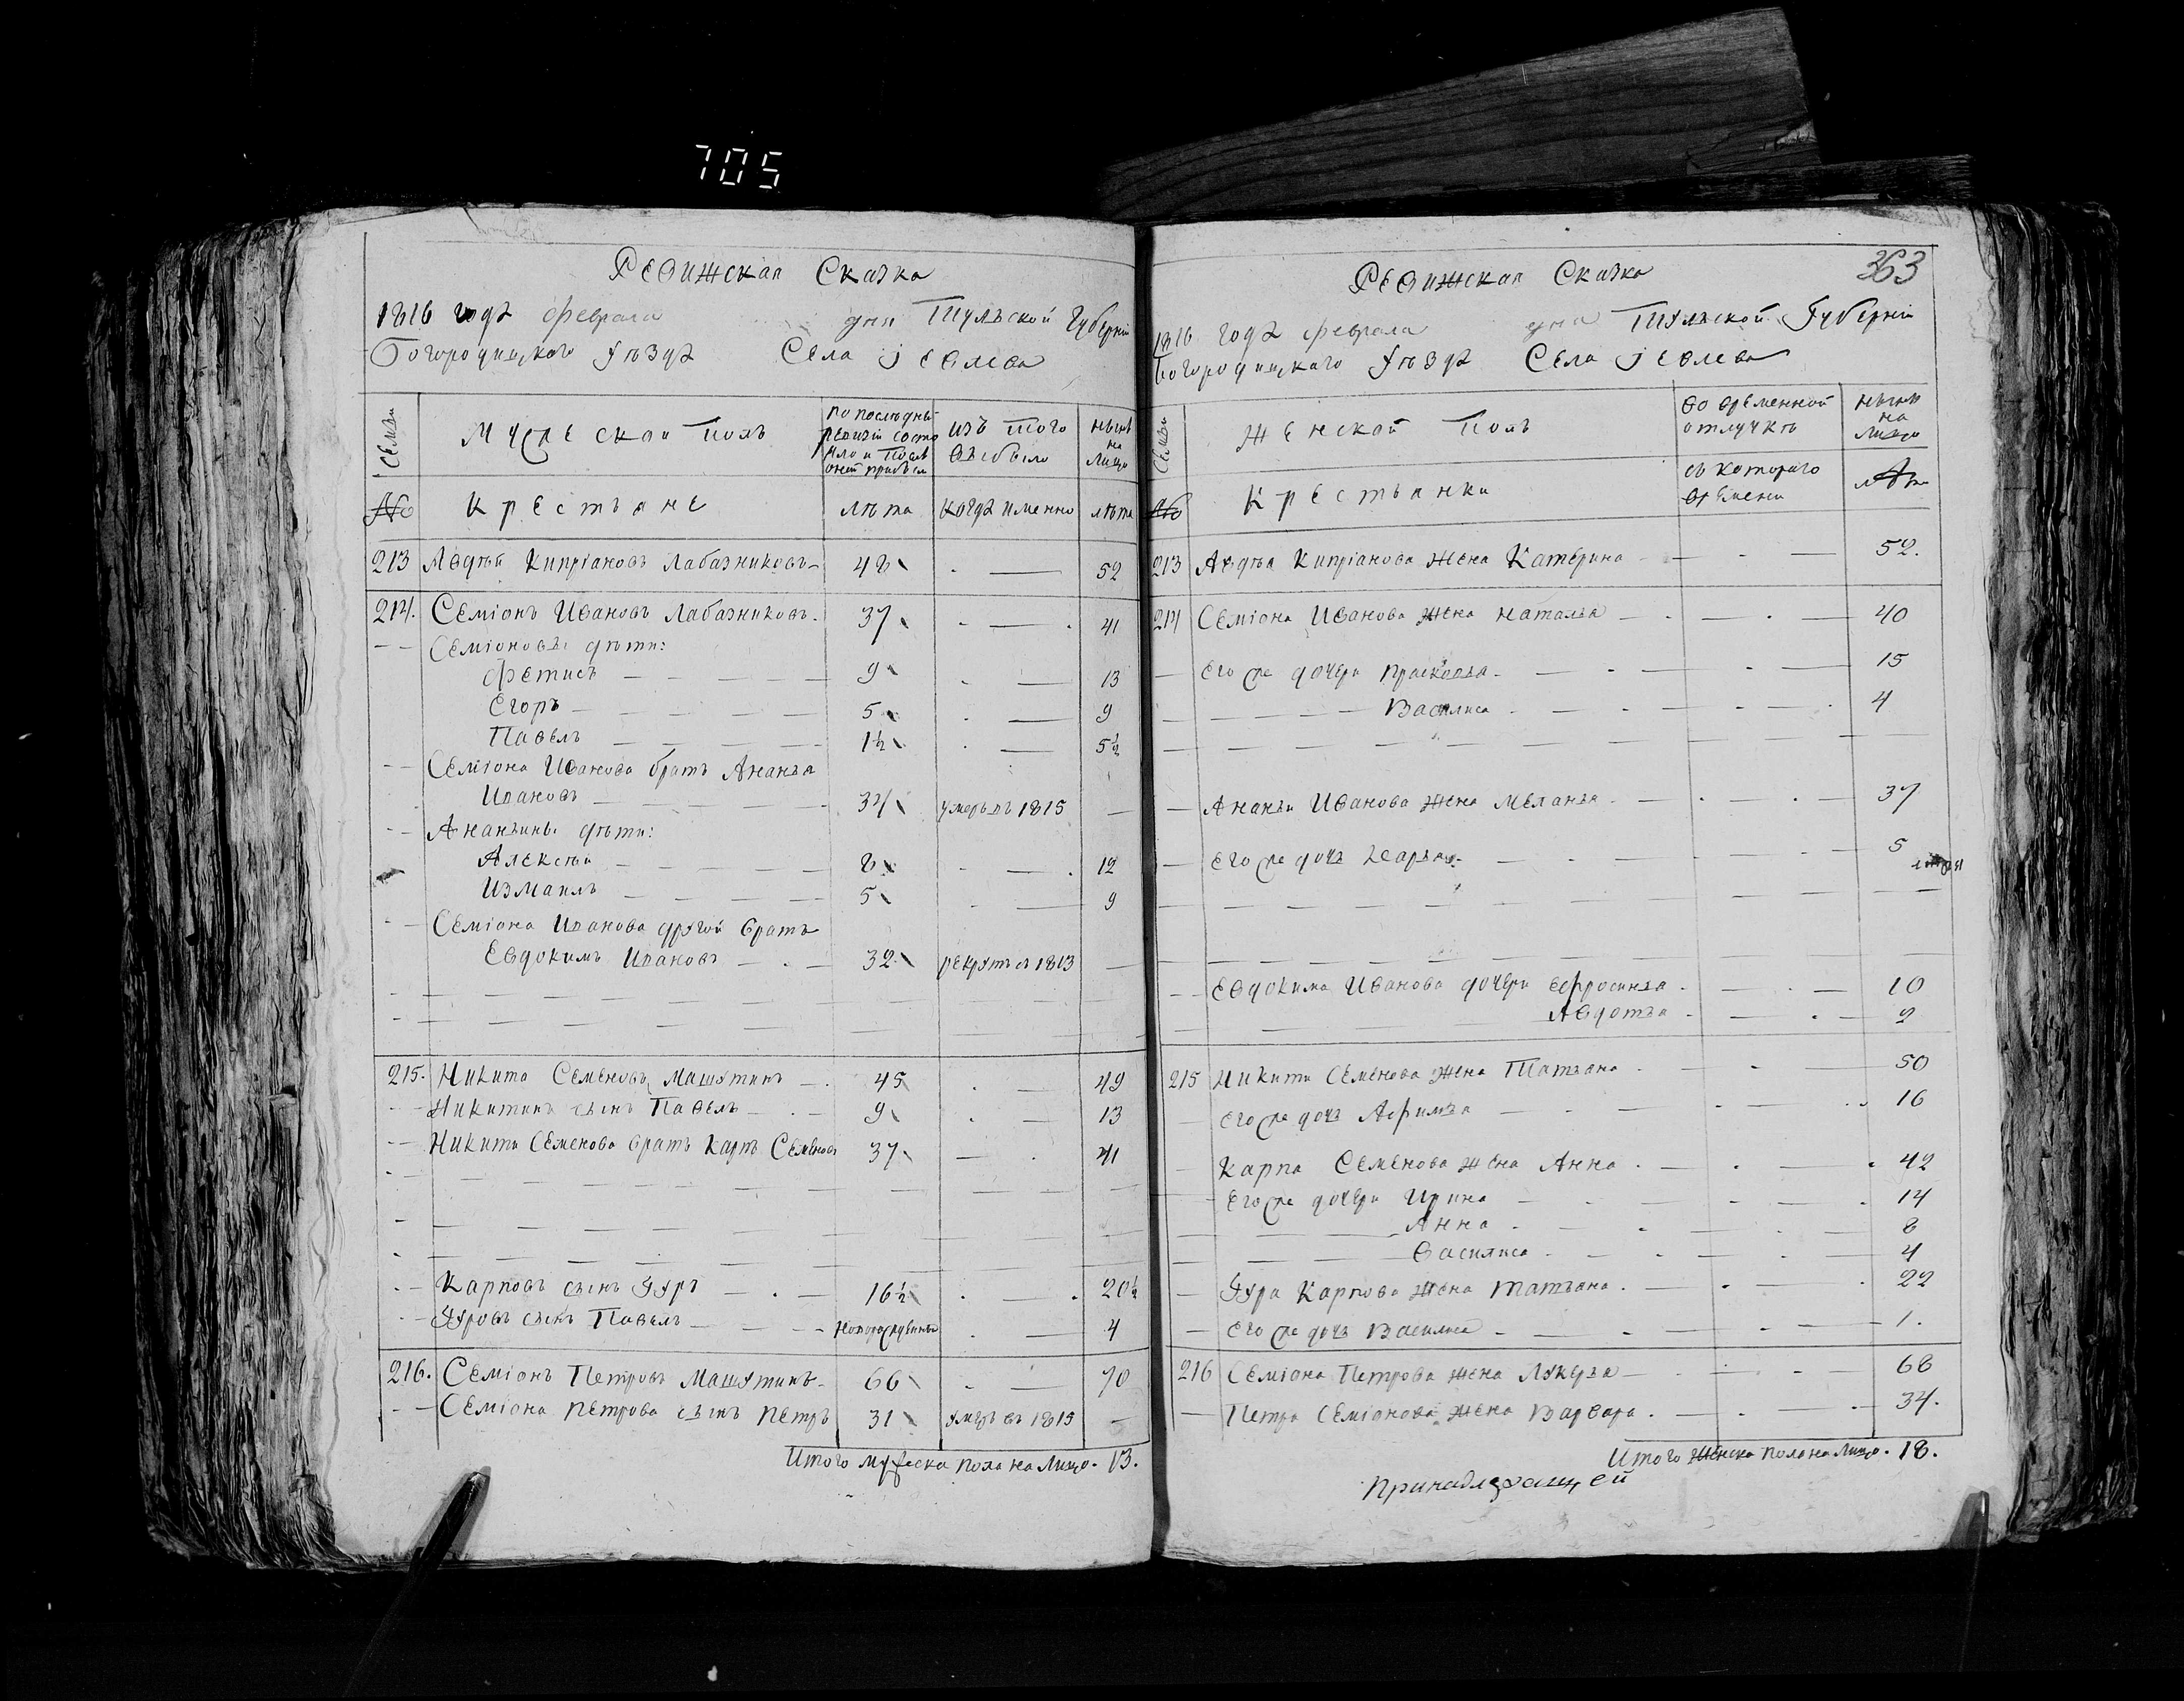 705
Ревижская Сказка
1816 годѣ февраля дня Тульской Губерніи
Богородицкого Уѣздѣ Села Іевлева
Семьи
Мужескои Полъ
по последней ревизій состояло и после оней прибыло
изъ того выбыло
нынѣ на лицо
№
Крестьяне
лѣта
когдѣ именно
лѣта
213 Авдѣй Кипріановъ Лабазниковъ 48 52
214. Семіонъ Ивановъ Лабазниковъ. 37 41
Семіоновы дѣти:
Фетисъ 9 13
Егоръ 5 9
Павелъ 1½ 5½
Семіона Иванова братъ Ананья
Ивановъ 34 умеръ въ 1815
Ананьины дѣти:
Алексѣй 8 12
Измаилъ 5 9
Семіона Иванова другой братъ
Евдокимъ Ивановъ 32 рекрутъ въ 1813
215. Никита Семеновъ Машутинъ 45 49
Никитинъ сынъ Павелъ 9 13
Никиты Семенова братъ Карпъ Семеновъ 37 41
Карповъ сынъ Гуръ 16½ 20½
Гуровъ сынъ Павелъ Новорожденный 4
216. Семіонъ Петровъ Машутинъ 66 70
Семіона Петрова сынъ Петръ 31 умеръ въ 1815
Итого мужеска пола на лицо. 13.
363
Ревижская Сказка
1816 годѣ февраля дня Тульской Губерніи
Богородицкаго Уѣздѣ Села Іевлева
Семьи
Женской Полъ
во временной отлучкѣ
нынѣ на лицо
№
Крестьянки
съ котораго времени
лѣта
213 Авдѣя Кипріанова жена Катерина 52.
214 Семіона Иванова жена Наталья 40
Его же дочери Прасковья 15
Василиса 4
Ананьи Иванова жена Меланья 37
Его же дочь Дарья 5
Евдокима Иванова дочери Ефросинья 10
Авдотья 9
215 Никиты Семенова жена Татьяна 50
Его же дочь Афимья 16
Карпа Семенова жена Анна 42
Его же дочери Ирина 14
Анна 8
Василиса 4
Гура Карпова жена Татьяна 22
Его же дочь Василиса 1.
216 Семіона Петрова жена Лукерья 68
Петра Семіонова жена Варвара 34.
Итого женска пола на лицо. 18.
Принадлежащей